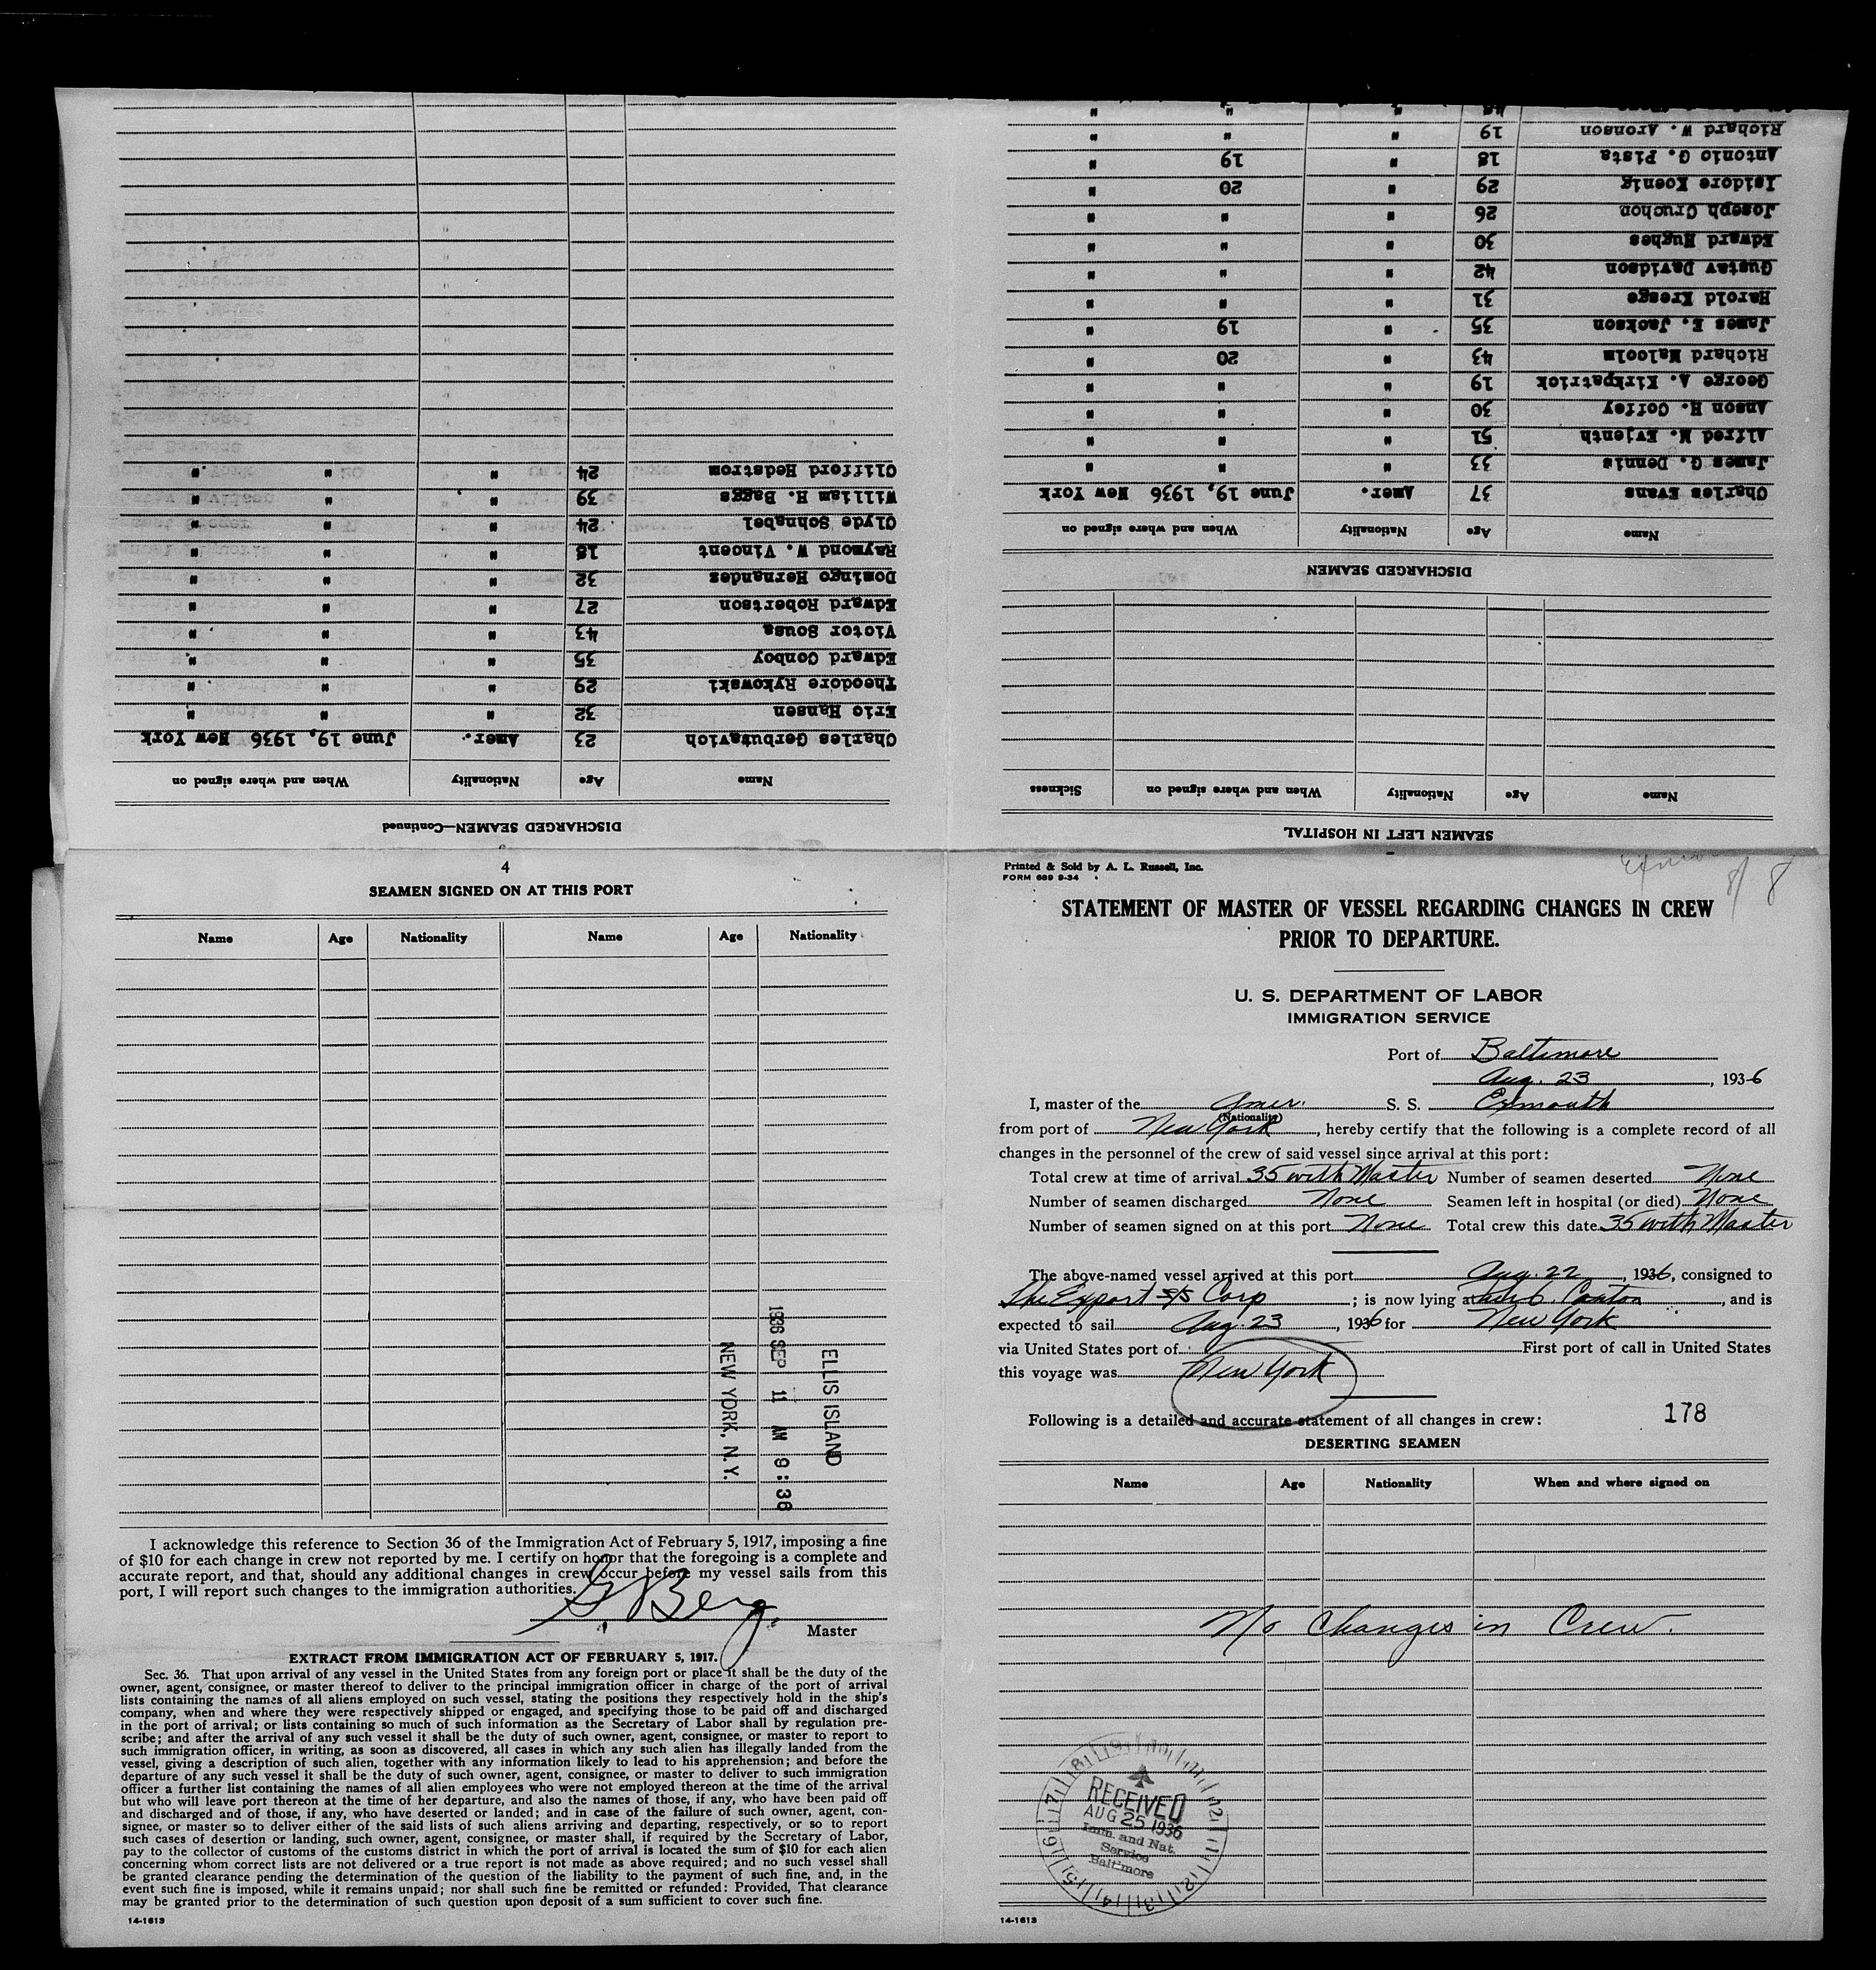 Printed & Sold by A. L. Russell, Inc.
FORM 689 9-34
8/8
STATEMENT OF MASTER OF VESSEL REGARDING CHANGES IN CREW
PRIOR TO DEPARTURE.
U. S. DEPARTMENT OF LABOR
IMMIGRATION SERVICE
Port of Baltimore
Aug. 23, 1936
I, master of the Amer. S. S. Exmouth
(Nationality)
from port of New York, hereby certify that the following is a complete record of all
changes in the personnel of the crew of said vessel since arrival at this port:
Total crew at time of arrival 35 with Master Number of seamen deserted None
Number of seamen discharged None Seamen left in hospital (or died) None
Number of seamen signed on at this port None Total crew this date 35 with Master
The above-named vessel arrived at this port Aug. 22, 1936, consigned to
The Export S/S Corp; is now lying at Canton, and is
expected to sail Aug. 23, 1936 for New York
via United States port of First port of call in United States
this voyage was New York
Following is a detailed and accurate statement of all changes in crew: 178
DESERTING SEAMEN
Name Age Nationality When and where signed on
No Changes in Crew.
RECEIVED
AUG 25 1936
Imm. and Nat.
Service
Baltimore
14-1613
SEAMEN LEFT IN HOSPITAL
Name Age Nationality When and where signed on Sickness
DISCHARGED SEAMEN
Name Age Nationality When and where signed on
Charles Evans 37 Amer. June 19, 1936 New York
James G. Dennis 33 " " "
Alfred M. Evjenth 51 " " "
Anson H. Coffey 30 " " "
George A. Kirkpatrick 19 " " "
Richard Malcolm 43 " 20 "
James E. Jackson 35 " 19 "
Harold Kresge 31 " " "
Gustav Davidson 42 " " "
Edward Hughes 30 " " "
Joseph Cruchon 26 " " "
Isidore Koenig 29 " 20 "
Antonio G. Pista 18 " 19 "
Richard W. Aronson 19 " " "
DISCHARGED SEAMEN—Continued
Name Age Nationality When and where signed on
Charles Gerbutavich 23 Amer. June 19, 1936 New York
Eric Hansen 32 " " "
Theodore Rykowski 29 " " "
Edward Conboy 35 " " "
Victor Sousa 43 " " "
Edward Robertson 27 " " "
Domingo Hernandez 32 " " "
Raymond W. Vincent 18 " " "
Clyde Schnabel 24 " " "
William H. Baggs 39 " " "
Clifford Hedstrom 24 " " "
4
SEAMEN SIGNED ON AT THIS PORT
Name Age Nationality Name Age Nationality
ELLIS ISLAND
1936 SEP 11 AM 9:38
NEW YORK, N.Y.
I acknowledge this reference to Section 36 of the Immigration Act of February 5, 1917, imposing a fine
of $10 for each change in crew not reported by me. I certify on honor that the foregoing is a complete and
accurate report, and that, should any additional changes in crew occur before my vessel sails from this
port, I will report such changes to the immigration authorities.
G. Berg.
Master
EXTRACT FROM IMMIGRATION ACT OF FEBRUARY 5, 1917.
Sec. 36. That upon arrival of any vessel in the United States from any foreign port or place it shall be the duty of the
owner, agent, consignee, or master thereof to deliver to the principal immigration officer in charge of the port of arrival
lists containing the names of all aliens employed on such vessel, stating the positions they respectively hold in the ship's
company, when and where they were respectively shipped or engaged, and specifying those to be paid off and discharged
in the port of arrival; or lists containing so much of such information as the Secretary of Labor shall by regulation pre-
scribe; and after the arrival of any such vessel it shall be the duty of such owner, agent, consignee, or master to report to
such immigration officer, in writing, as soon as discovered, all cases in which any such alien has illegally landed from the
vessel, giving a description of such alien, together with any information likely to lead to his apprehension; and before the
departure of any such vessel it shall be the duty of such owner, agent, consignee, or master to deliver to such immigration
officer a further list containing the names of all alien employees who were not employed thereon at the time of the arrival
but who will leave port thereon at the time of her departure, and also the names of those, if any, who have been paid off
and discharged and of those, if any, who have deserted or landed; and in case of the failure of such owner, agent, con-
signee, or master so to deliver either of the said lists of such aliens arriving and departing, respectively, or so to report
such cases of desertion or landing, such owner, agent, consignee, or master shall, if required by the Secretary of Labor,
pay to the collector of customs of the customs district in which the port of arrival is located the sum of $10 for each alien
concerning whom correct lists are not delivered or a true report is not made as above required; and no such vessel shall
be granted clearance pending the determination of the question of the liability to the payment of such fine, and, in the
event such fine is imposed, while it remains unpaid; nor shall such fine be remitted or refunded: Provided, That clearance
may be granted prior to the determination of such question upon deposit of a sum sufficient to cover such fine.
14-1613